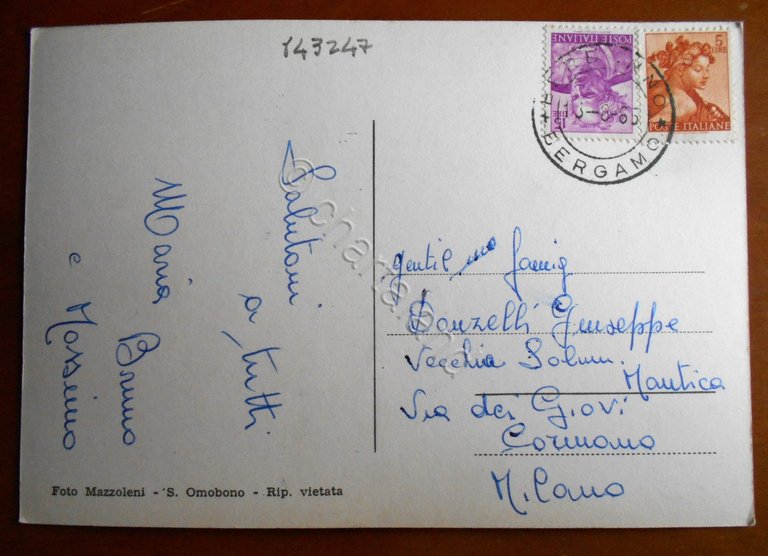 143247
POSTE ITALIANE
15 LIRE
5 LIRE
POSTE ITALIANE
13-8-63
BERGAMO
Salutoni
a tutti
Maria Bruno
e Massimo
gentil mo famig
Donzelli Giuseppe
Vecchia Solum.
Mantica
Via dei Giovi
Cormano
Milano
Foto Mazzoleni - S. Omobono - Rip. vietata